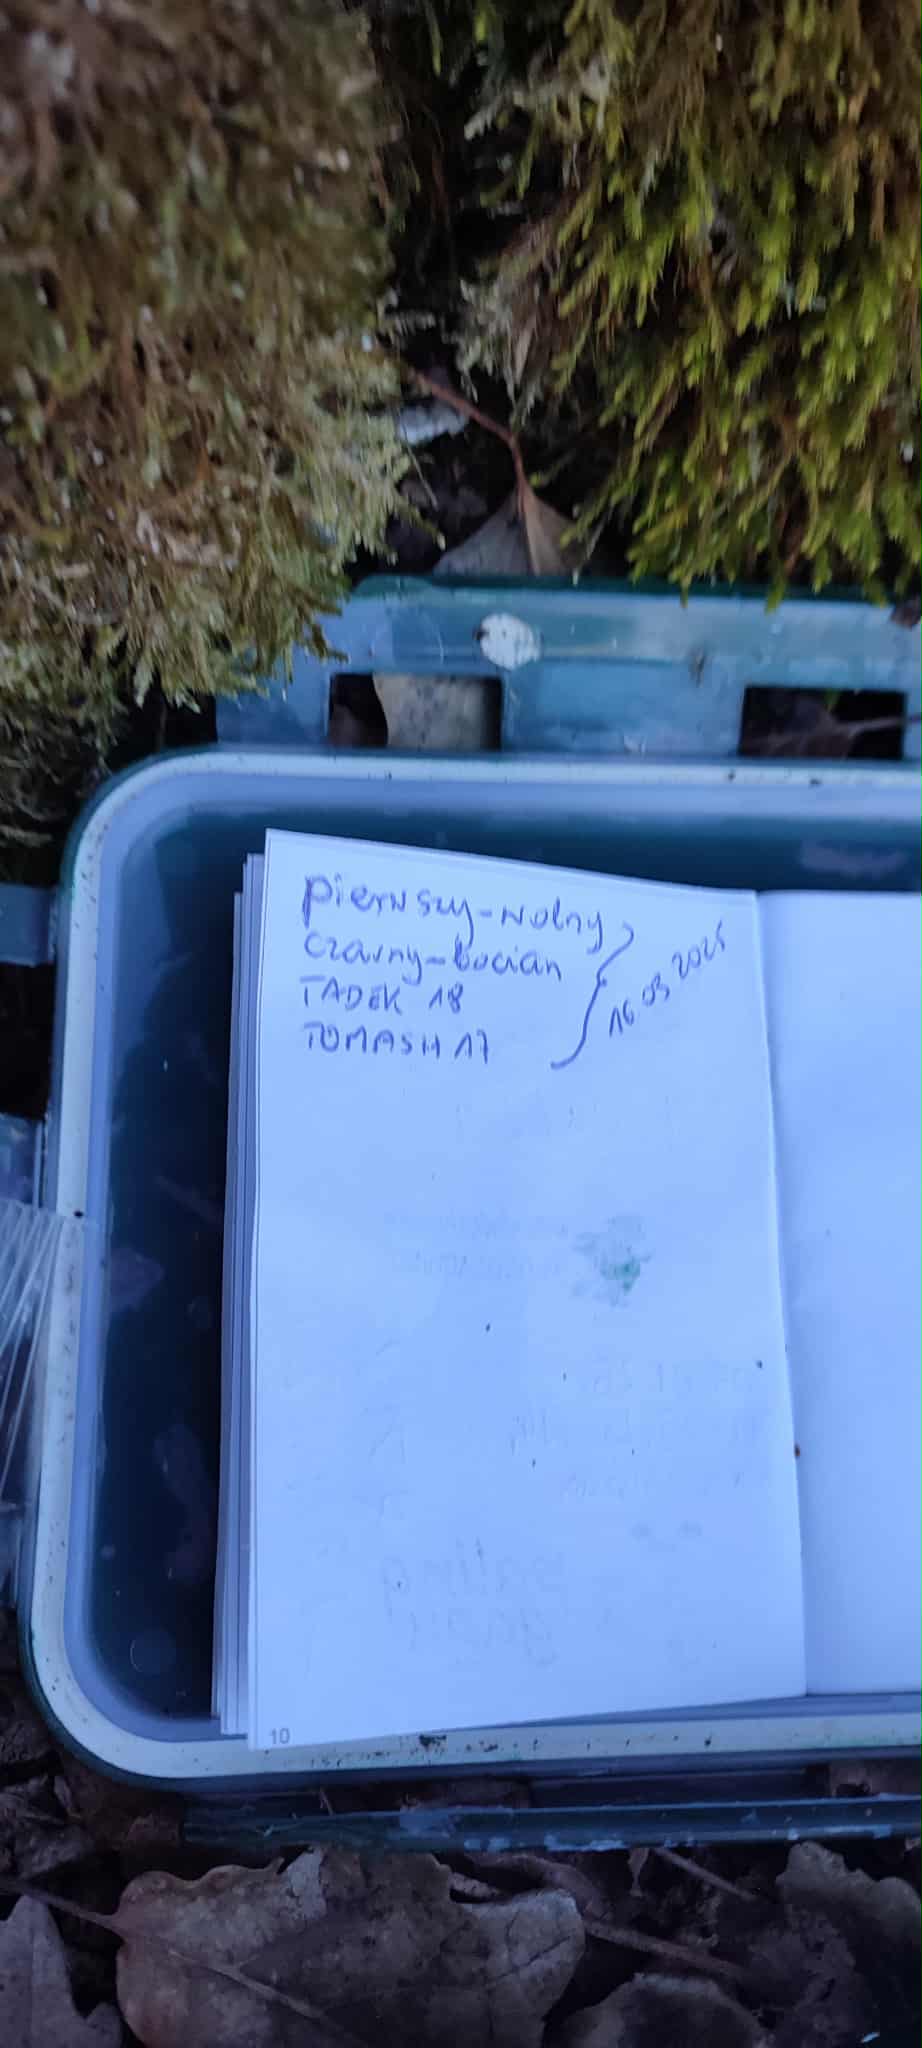 pierwszy-wolny
czarny-bocian
TADEK 18
TOMASH 17
16.03.2025
10